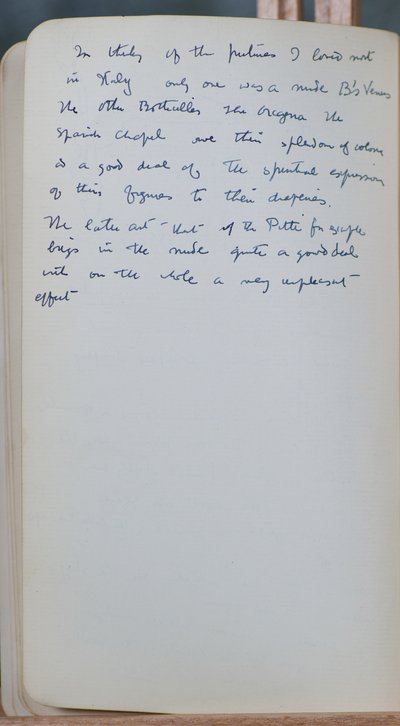 In Italy of the pictures I loved most
in Italy only one was a nude B's Venus
The other Botticellis the Orcagna the
Spanish Chapel owe their splendour of colour
& a good deal of the spiritual expression
of their figures to their draperies.
The later art - that of the Pitti for example
brings in the nude quite a good deal
with on the whole a very unpleasant
effect